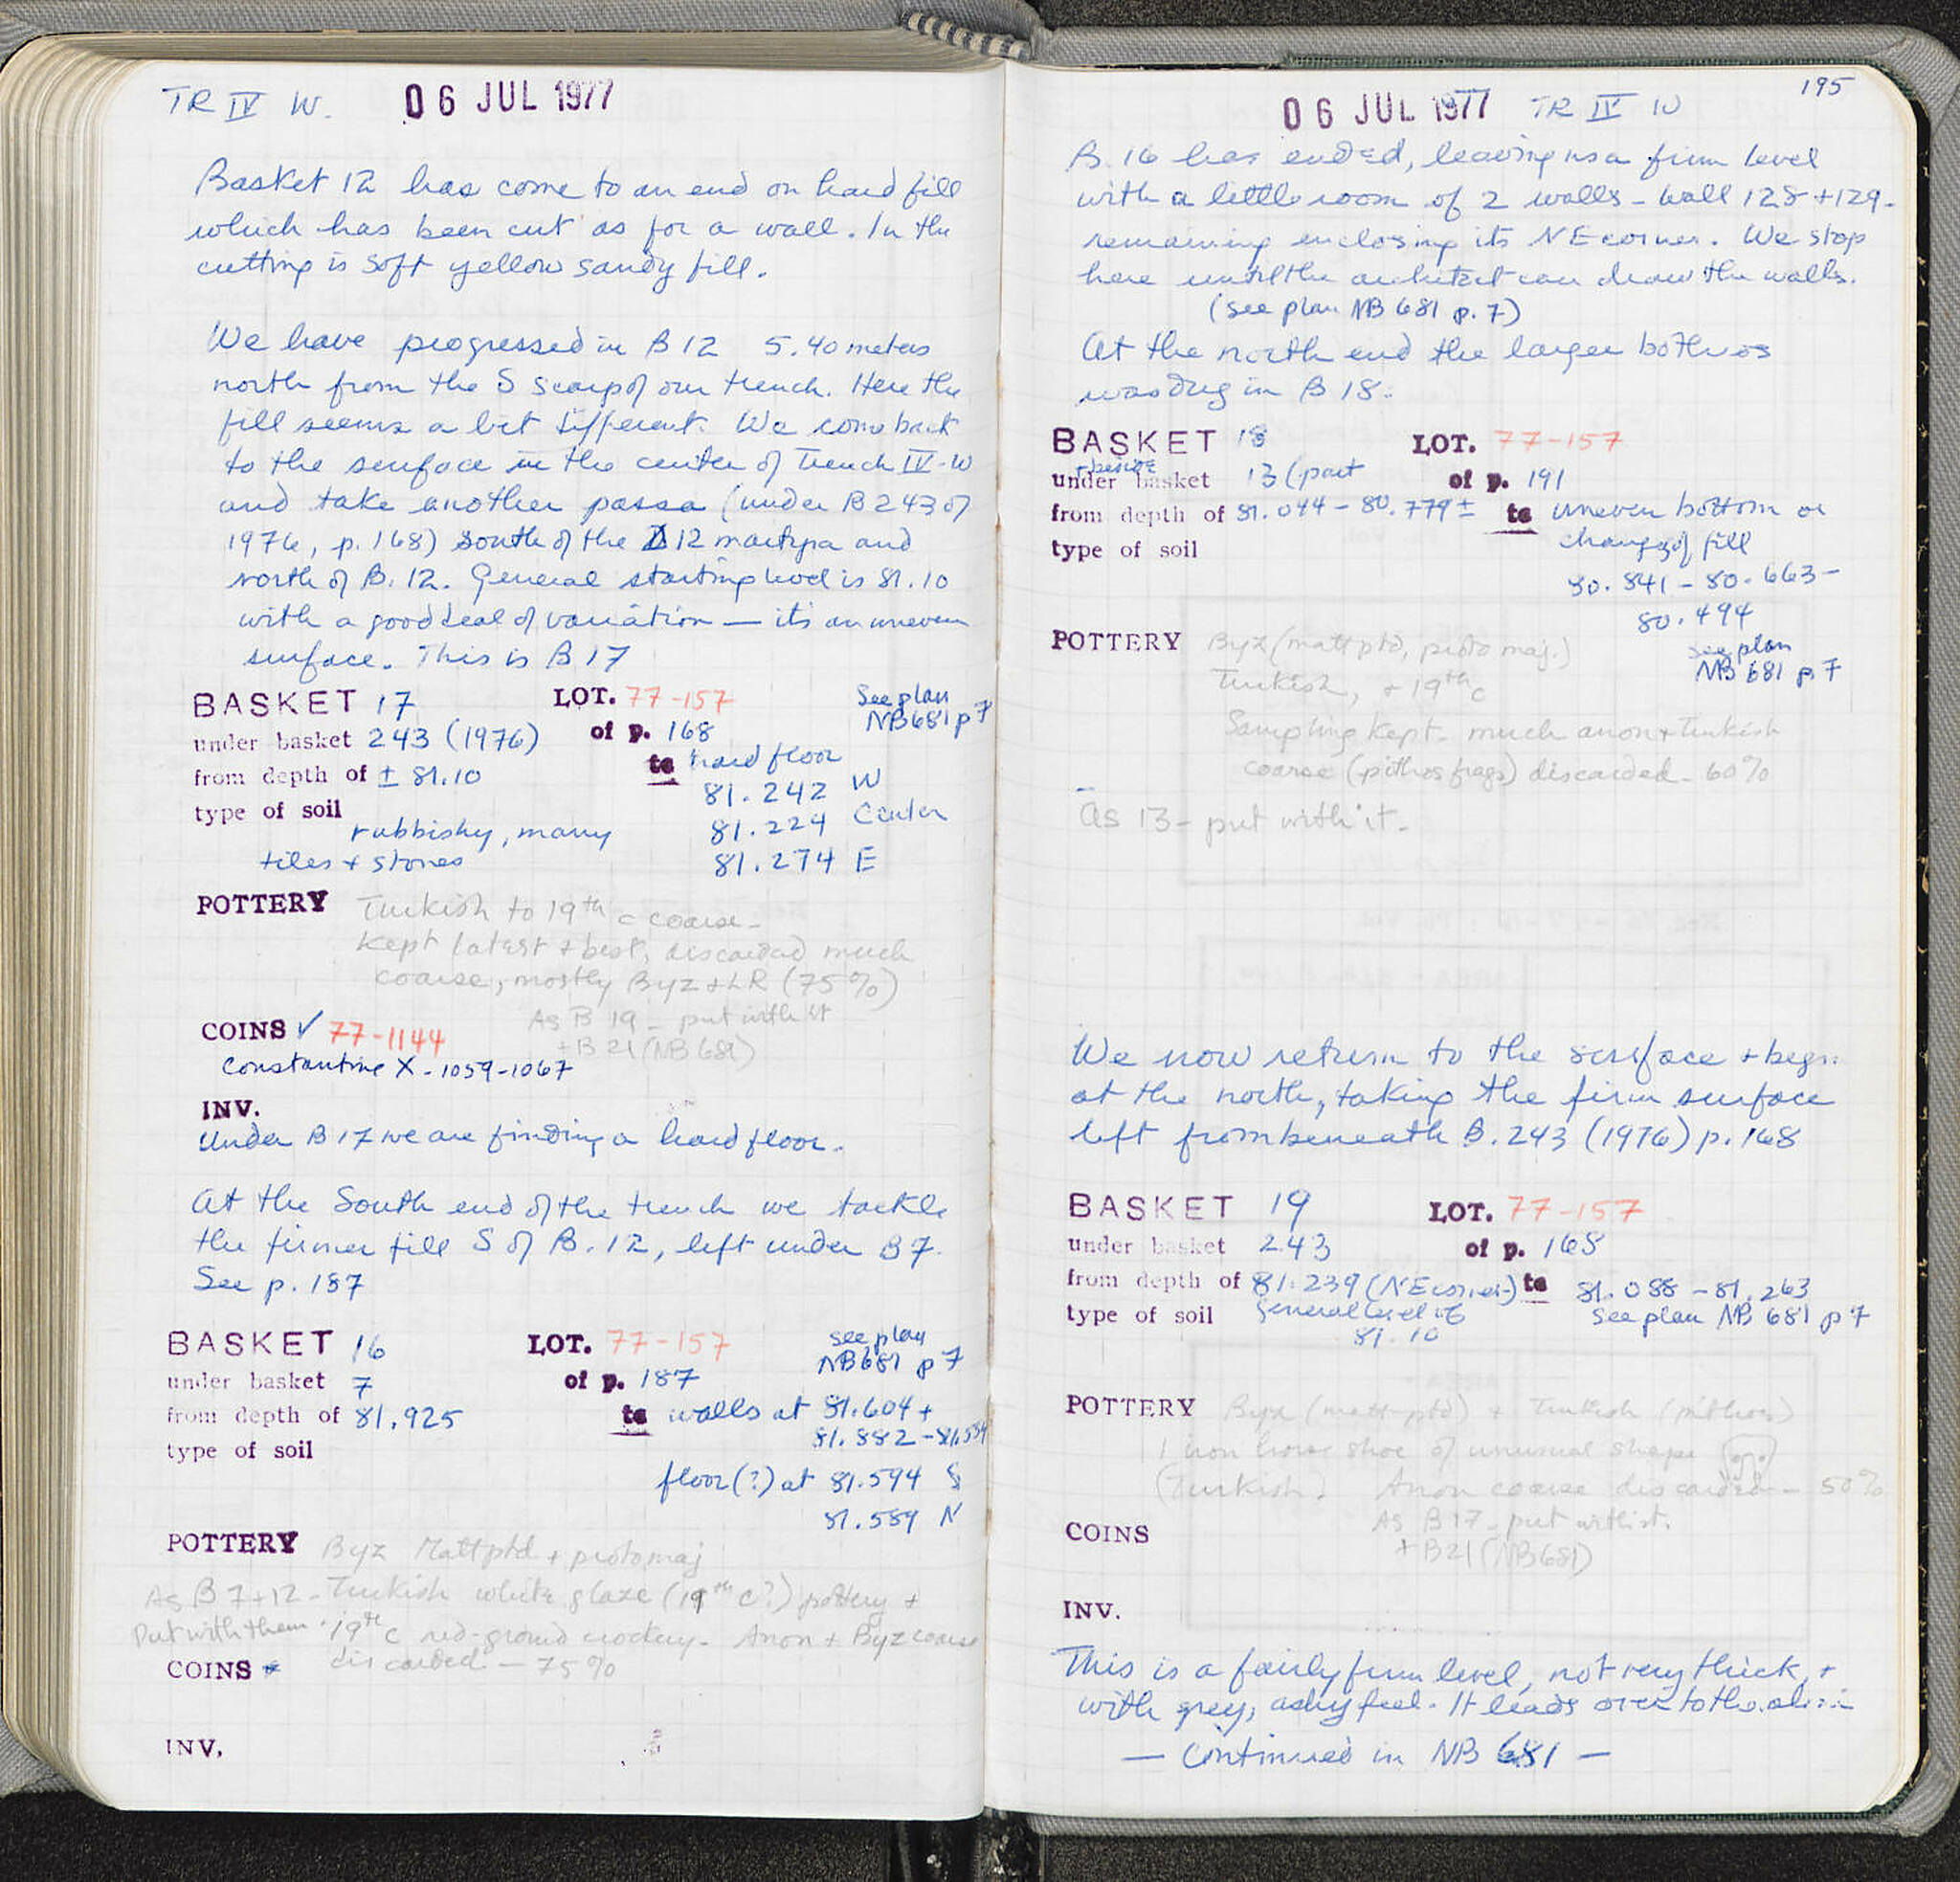 TR IV W. 06 JUL 1977
Basket 12 has come to an end on hard fill
which has been cut as for a wall. In the
cutting is soft yellow sandy fill.
We have progressed in B 12 5.40 meters
north from the S scarp of our trench. Here the
fill seems a bit different. We come back
to the surface in the center of Trench IV-W
and take another passa (under B 243 of
1976, p. 168) south of the 12 martyra and
north of B. 12. General starting level is 81.10
with a good deal of variation — it's an uneven
surface. This is B 17
BASKET 17 LOT. 77-157 See plan
NB 681 p 7
under basket 243 (1976) of p. 168
from depth of ± 81.10 to hard floor
81.242 W
type of soil rubbishy, many 81.224 Center
tiles + stones 81.274 E
POTTERY Turkish to 19th c coarse -
Kept latest + best, discarded much
coarse, mostly Byz + LR (75%)
As B 19 - put with it
+ B 21 (NB 681)
COINS ✓ 77-1144
Constantine X - 1059-1067
INV.
Under B 17 we are finding a hard floor.
At the South end of the trench we tackle
the firmer fill S of B. 12, left under B 7.
See p. 187
BASKET 16 LOT. 77-157 see plan
NB 681 p 7
under basket 7 of p. 187
from depth of 81.925 to walls at 81.604 +
81.882 -
type of soil
floor (?) at 81.594 S
81.589 N
POTTERY Byz Matt ptd + protomaj
As B 7+12 - Turkish white glaze (19th c?) pottery +
Put with them 19th c red-ground crockery - Anon + Byz coarse
discarded - 75%
COINS
INV.
06 JUL 1977 TR IV W 195
B. 16 has ended, leaving us a firm level
with a little room of 2 walls - wall 128 + 129 -
remaining enclosing its NE corner. We stop
here until the architect can draw the walls.
(see plan NB 681 p. 7)
At the north end the larger bothros
was dug in B 18.
BASKET 18 LOT. 77-157
+ beside
under basket 13 (part of p. 191
from depth of 81.044 - 80.779 ± to uneven bottom or
change of fill
type of soil
80.841 - 80.663 -
80.494
see plan
NB 681 p. 7
POTTERY Byz (matt ptd, proto maj.)
Turkish, + 19th c
Sampling kept - much anon + Turkish
coarse (pithos frags) discarded - 60%
As 13 - put with it -
We now return to the surface + begin
at the north, taking the firm surface
left from beneath B. 243 (1976) p. 168
BASKET 19 LOT. 77-157
under basket 243 of p. 168
from depth of 81.239 (NE corner) to 81.088 - 81.263
type of soil general level of see plan NB 681 p 7
81.10
POTTERY Byz (matt-ptd) + Turkish (pithos)
1 iron horse shoe of unusual shape
(Turkish). Anon coarse discarded - 50%
As B 17 - put with it.
+ B 21 (NB 681)
COINS
INV.
This is a fairly firm level, not very thick, +
with grey, ashy feel. It leads over to the
— Continued in NB 681 —